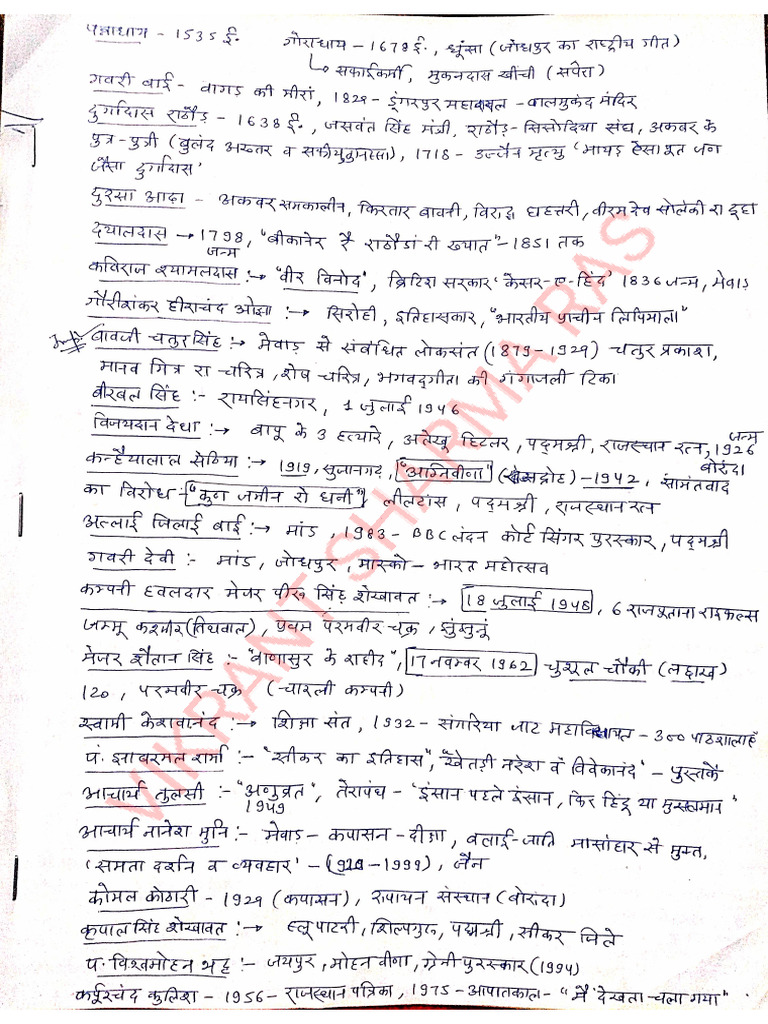 पन्नाधाय - 1535 ई. गोराधाय - 1679 ई., धूंसा (जोधपुर का राष्ट्रीय गीत)
↳ सफाईकर्मी, मुकनदास खींची (सपेरा)
गवरी बाई - वागड़ की मीरां, 1829 - डूंगरपुर महारावल - बालमुकंद मंदिर
दुर्गादास राठौड़ - 1638 ई., जसवंत सिंह मंत्री, राठौड़-सिसोदिया संघ, अकबर के
पुत्र-पुत्री (बुलंद अख्तर व सफीयुतुन्निसा), 1718 - उज्जैन मृत्यु 'मायड़ ऐसा पूत जण
जैसा दुर्गादास'
दुरसा आढ़ा - अकबर समकालीन, किरतार बावनी, विरुद्ध छहत्तरी, वीरमदेव सोलंकी रा दूहा
दयालदास → 1798, "बीकानेर रै राठौडां री ख्यात" - 1851 तक
जन्म
कविराज श्यामलदास :→ "वीर विनोद", ब्रिटिश सरकार 'केसर-ए-हिंद' 1836 जन्म, मेवाड़
गौरीशंकर हीराचंद ओझा :→ सिरोही, इतिहासकार, "भारतीय प्राचीन लिपिमाला"
Imp बावजी चतुरसिंह :→ मेवाड़ से संबंधित लोकसंत (1879-1929) चतुर प्रकाश,
मानव मित्र रा चरित्र, शेष चरित्र, भगवद्गीता की गंगाजली टिका
बीरबल सिंह :- रायसिंहनगर, 1 जुलाई 1946
विजयदान देथा :→ बापू के 3 हत्यारे, अलेखू हिटलर, पद्मश्री, राजस्थान रत्न, जन्म 1926 बोरुंदा
कन्हैयालाल सेठिया :→ 1919, सुजानगढ़, "अग्निवीणा" (राजद्रोह) - 1942, सामंतवाद
का विरोध - "कुण जमीन रो धणी", लीलटांस, पद्मश्री, राजस्थान रत्न
अल्लाई जिलाई बाई :→ मांड, 1983 - BBC लंदन कोर्ट सिंगर पुरस्कार, पद्मश्री
गवरी देवी :- मांड, जोधपुर, मास्को - भारत महोत्सव
कम्पनी हवलदार मेजर पीरू सिंह शेखावत :→ 18 जुलाई 1948, 6 राजपूताना राइफल्स
जम्मू कश्मीर (तिथवाल), प्रथम परमवीर चक्र, झुंझुनूं
मेजर शैतान सिंह :- "बाणासुर के शहीद", 17 नवम्बर 1962 चुशूल चौकी (लद्दाख)
120, परमवीर चक्र (चारली कम्पनी)
स्वामी केशवानंद :→ शिक्षा संत, 1932 - संगरिया जाट महाविद्यालय - 300 पाठशालाएँ
पं. झाबरमल शर्मा :- "सीकर का इतिहास", "खेतड़ी नरेश व विवेकानंद" - पुस्तकें
आचार्य तुलसी :- "अणुव्रत", तेरापंथ - 'इंसान पहले इंसान, फिर हिंदू या मुसलमान"
1949
आचार्य नानेश मुनि :- मेवाड़ - कपासन - दीक्षा, बलाई-जाति मांसाहार से मुक्त,
'समता दर्शन व व्यवहार' - (1920-1999), जैन
कोमल कोठारी - 1929 (कपासन), रूपायन संस्थान (बोरुंदा)
कृपाल सिंह शेखावत :→ ब्लू पाटरी, शिल्पगुरु, पद्मश्री, सीकर जिले
प. विश्वमोहन भट्ट :- जयपुर, मोहन वीणा, ग्रेमी पुरस्कार (1994)
कर्पूरचंद कुलिश - 1956 - राजस्थान पत्रिका, 1975 - आपातकाल - "मैं देखता चला गया"
VIKRANT SHARMA RAS